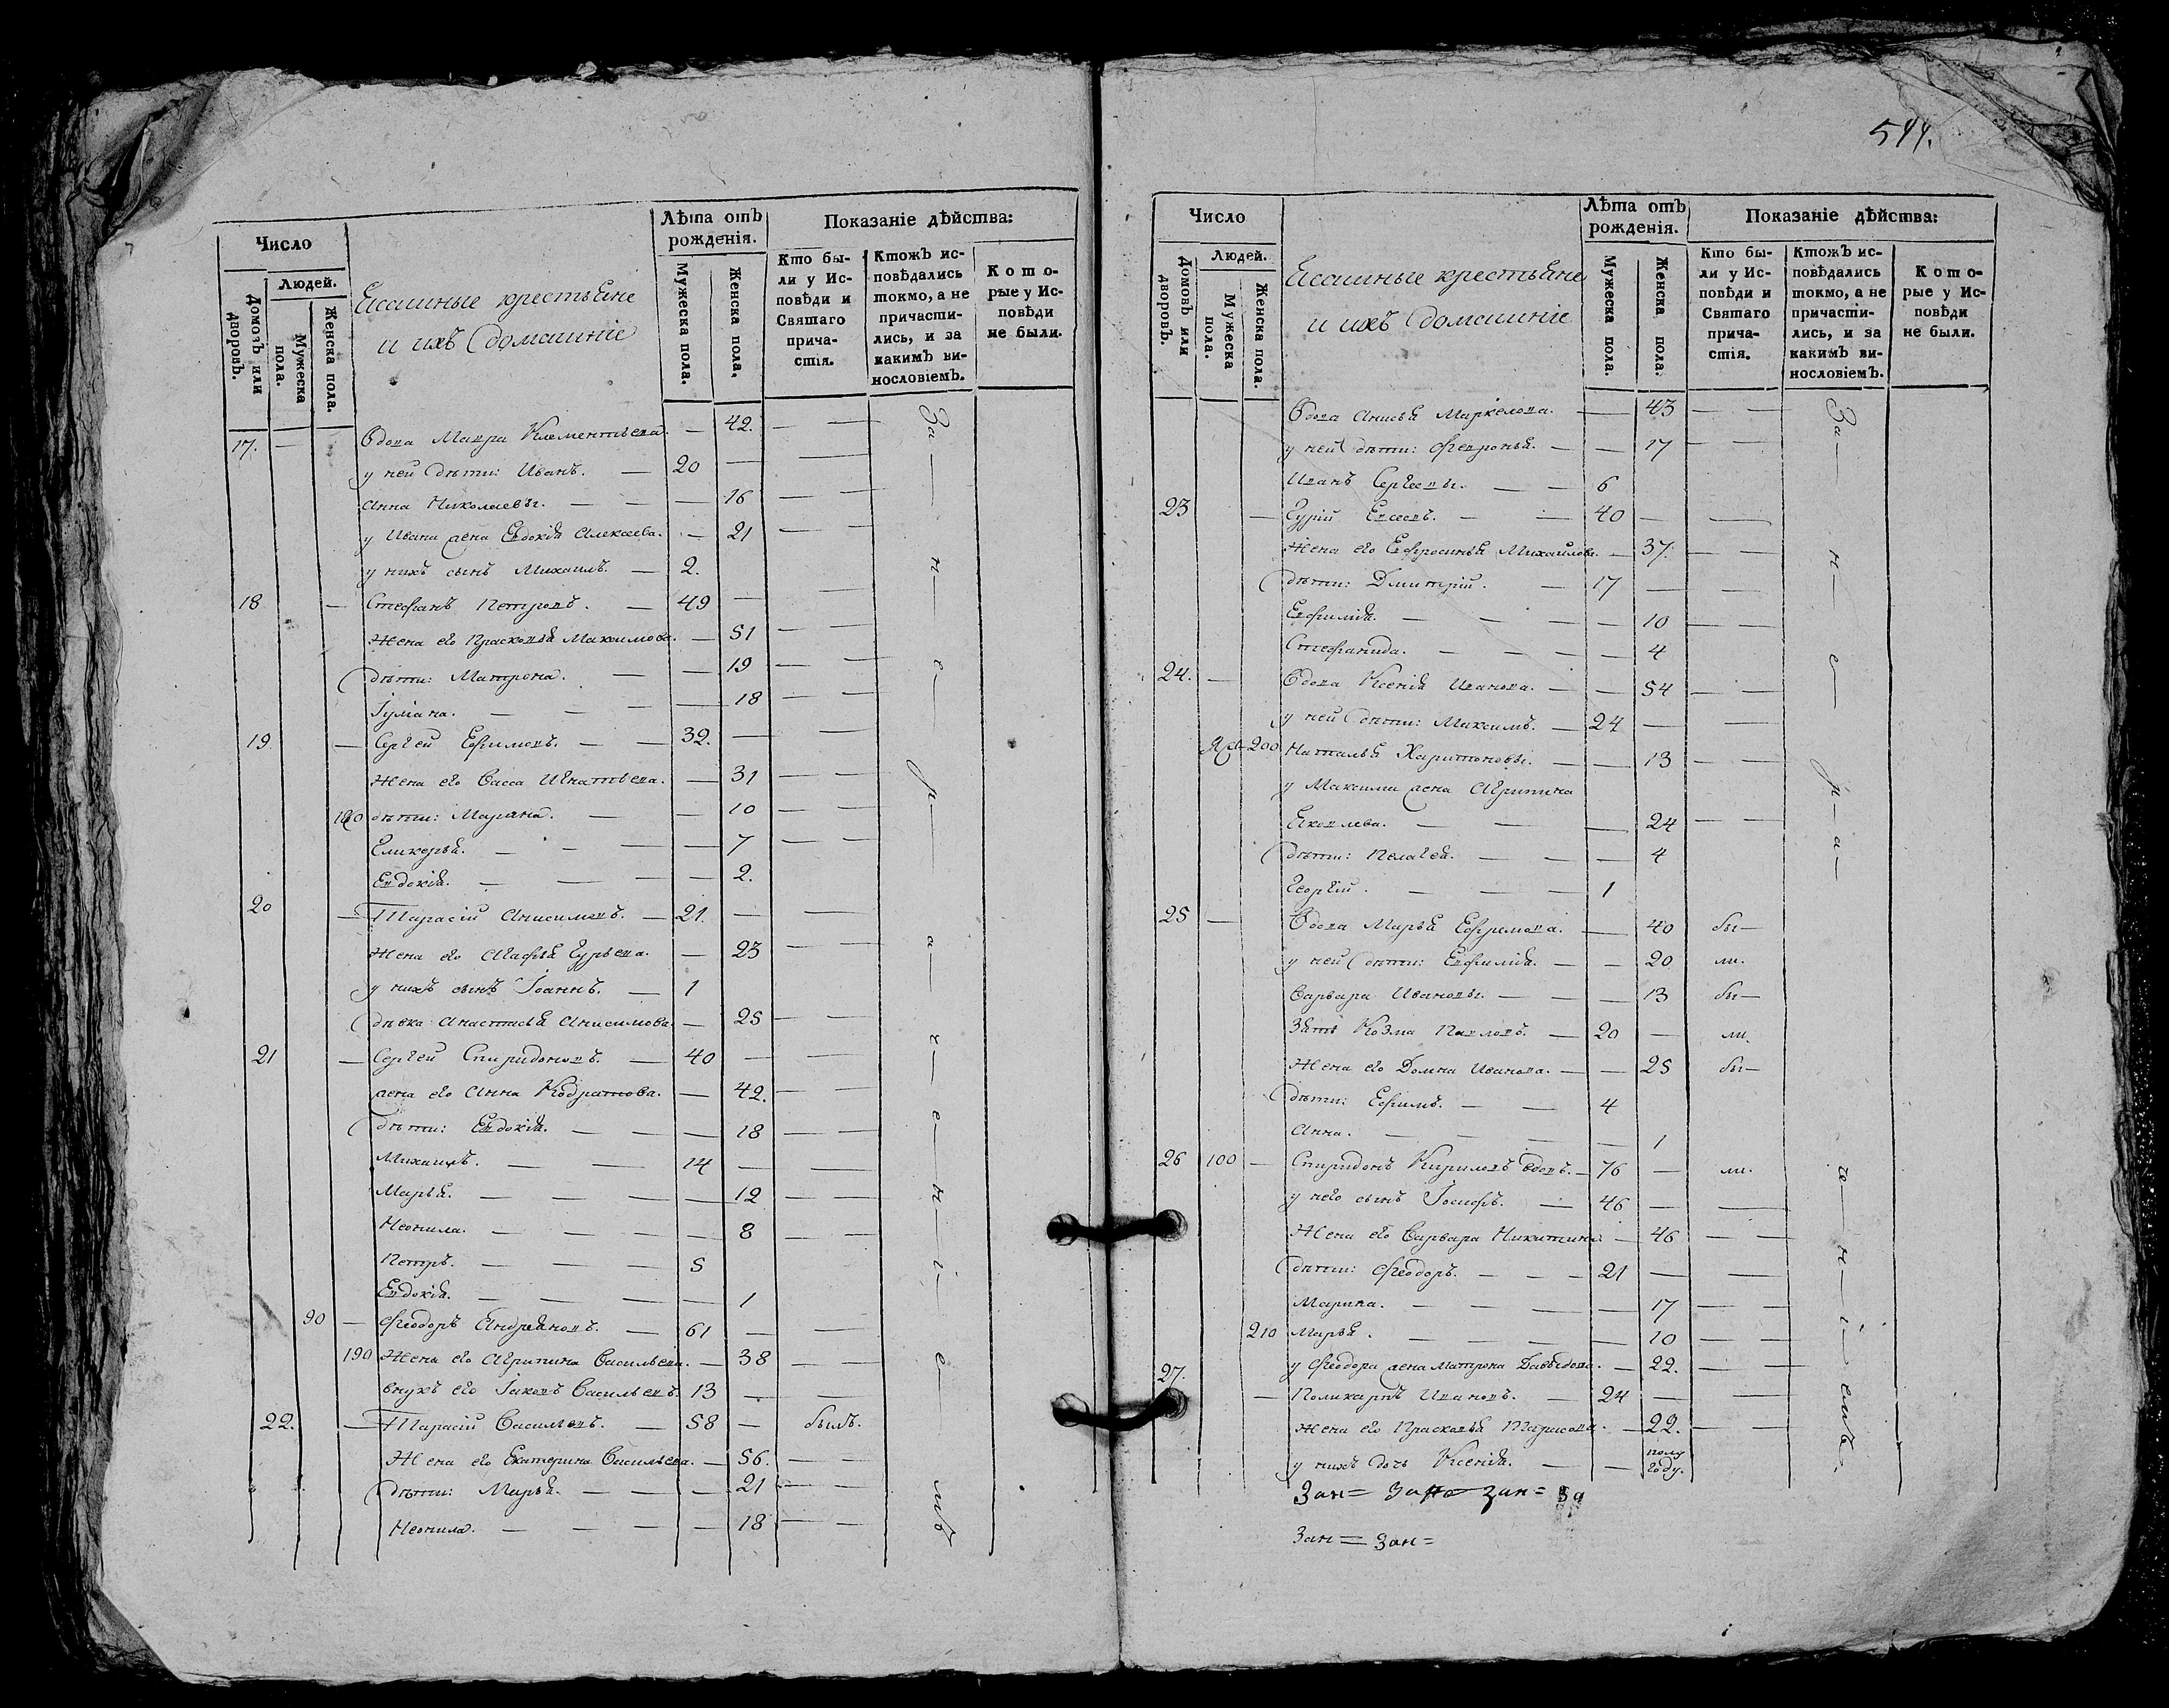 Число
Людей.
Домовъ или дворовъ.
Мужеска пола.
Женска пола.
Ясашные крестьяне
и ихъ домашніе
Лѣта отъ рожденія.
Мужеска пола.
Женска пола.
Показаніе дѣйства:
Кто были у Исповѣди и Святаго причастія.
Ктожъ исповѣдались токмо, а не причастились, и за какимъ винословіемъ.
Которые у Исповѣди не были.
17. Вдова Мавра Клементьева. 42.
у ней дѣти: Иванъ. 20
Анна Николаевы. 16
у Ивана жена Евдокія Алексеева. 21
у нихъ сынъ Михаилъ. 2.
18 Стефанъ Петровъ. 49
Жена его Прасковья Максимова. 51
дѣти: Матрона. 19
Іуліана. 18
19 Сергей Ефимовъ. 32.
Жена его Васса Игнатьева. 31
180 дѣти: Марина. 10
Гликерья. 7
Евдокія. 2.
20 Тарасій Анисимовъ. 21.
Жена его Агафья Гурьева. 23
у нихъ сынъ Іоаннъ. 1
дѣвка Анастасья Анисимова. 25
21 Сергей Спиридоновъ. 40
жена его Анна Кодратова. 42.
дѣти: Евдокія. 18
Михаилъ. 14
Марья. 12
Неонила. 8
Петръ. 5
Евдокія. 1
90 Феодоръ Андреяновъ. 61
190 Жена его Агрипина Васильева. 38
внукъ его Іаковъ Васильевъ. 13
22. Тарасій Васильевъ. 58 былъ.
Жена его Екатерина Васильева. 56.
дѣти: Марья. 21
Неонила. 18
За — н — е — р — а — ч — е — н — і — е — мъ
544.
Число
Людей.
Домовъ или дворовъ.
Мужеска пола.
Женска пола.
Ясашные крестьяне
и ихъ домашніе
Лѣта отъ рожденія.
Мужеска пола.
Женска пола.
Показаніе дѣйства:
Кто были у Исповѣди и Святаго причастія.
Ктожъ исповѣдались токмо, а не причастились, и за какимъ винословіемъ.
Которые у Исповѣди не были.
Вдова Анисья Маркелова. 43
у ней дѣти: Февронья. 17
Иванъ Сергеевы. 6
23 Гурій Евсеевъ. 40
Жена его Ефросинья Михайлова. 37.
дѣти: Дмитрій. 17
Евфимія. 10
Стефанида. 4
24. Вдова Ксенія Иванова. 54
у ней дѣти: Максимъ. 24
200 Наталья Харитоновы. 13
у Максима жена Агрипина
Яковлева. 24
дѣти: Пелагея. 4
Георгій. 1
25 Вдова Марья Ефремова. 40 бы—
у ней дѣти: Евфимія. 20 ли.
Варвара Ивановы. 13 бы—
Зять Козма Павловъ. 20 ли.
Жена его Домна Иванова. 25 бы—
дѣти: Ефимъ. 4
Анна. 1
26 100 Спиридонъ Кириловъ вдовъ. 76 ли.
у него сынъ Іосифъ. 46
Жена его Варвара Никитина. 46
дѣти: Феодоръ. 21
Марина. 17
210 Марья. 10
у Феодора жена Матрона Давыдова. 22.
27. Поликарпъ Ивановъ. 24
Жена его Прасковья Тарасова. 22.
у нихъ дочь Ксенія. полу году.
За — н — е — р — а — ч — е — н — і — емъ.
Зан= Зан= Зан=
Зан= Зан=